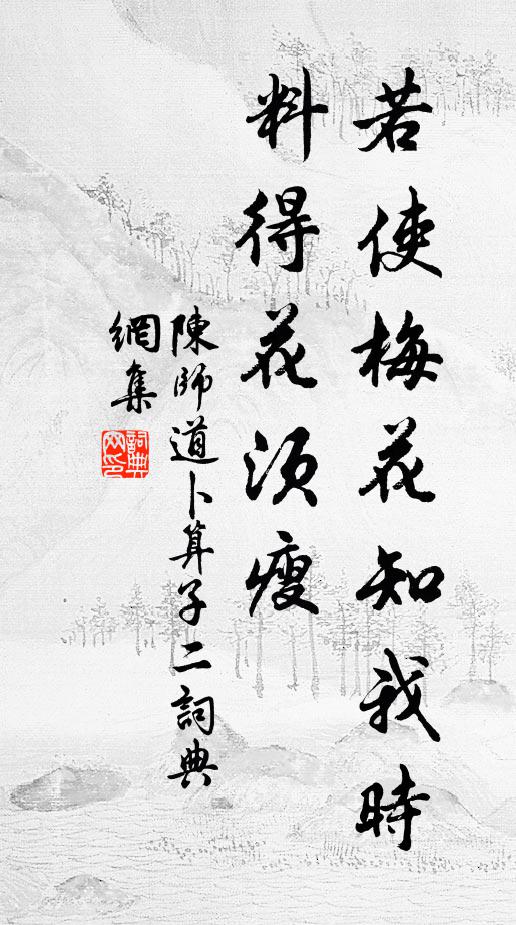 若使梅花知我時
料得花須瘦
陳師道卜算子二詞典
網集
詞典
网印